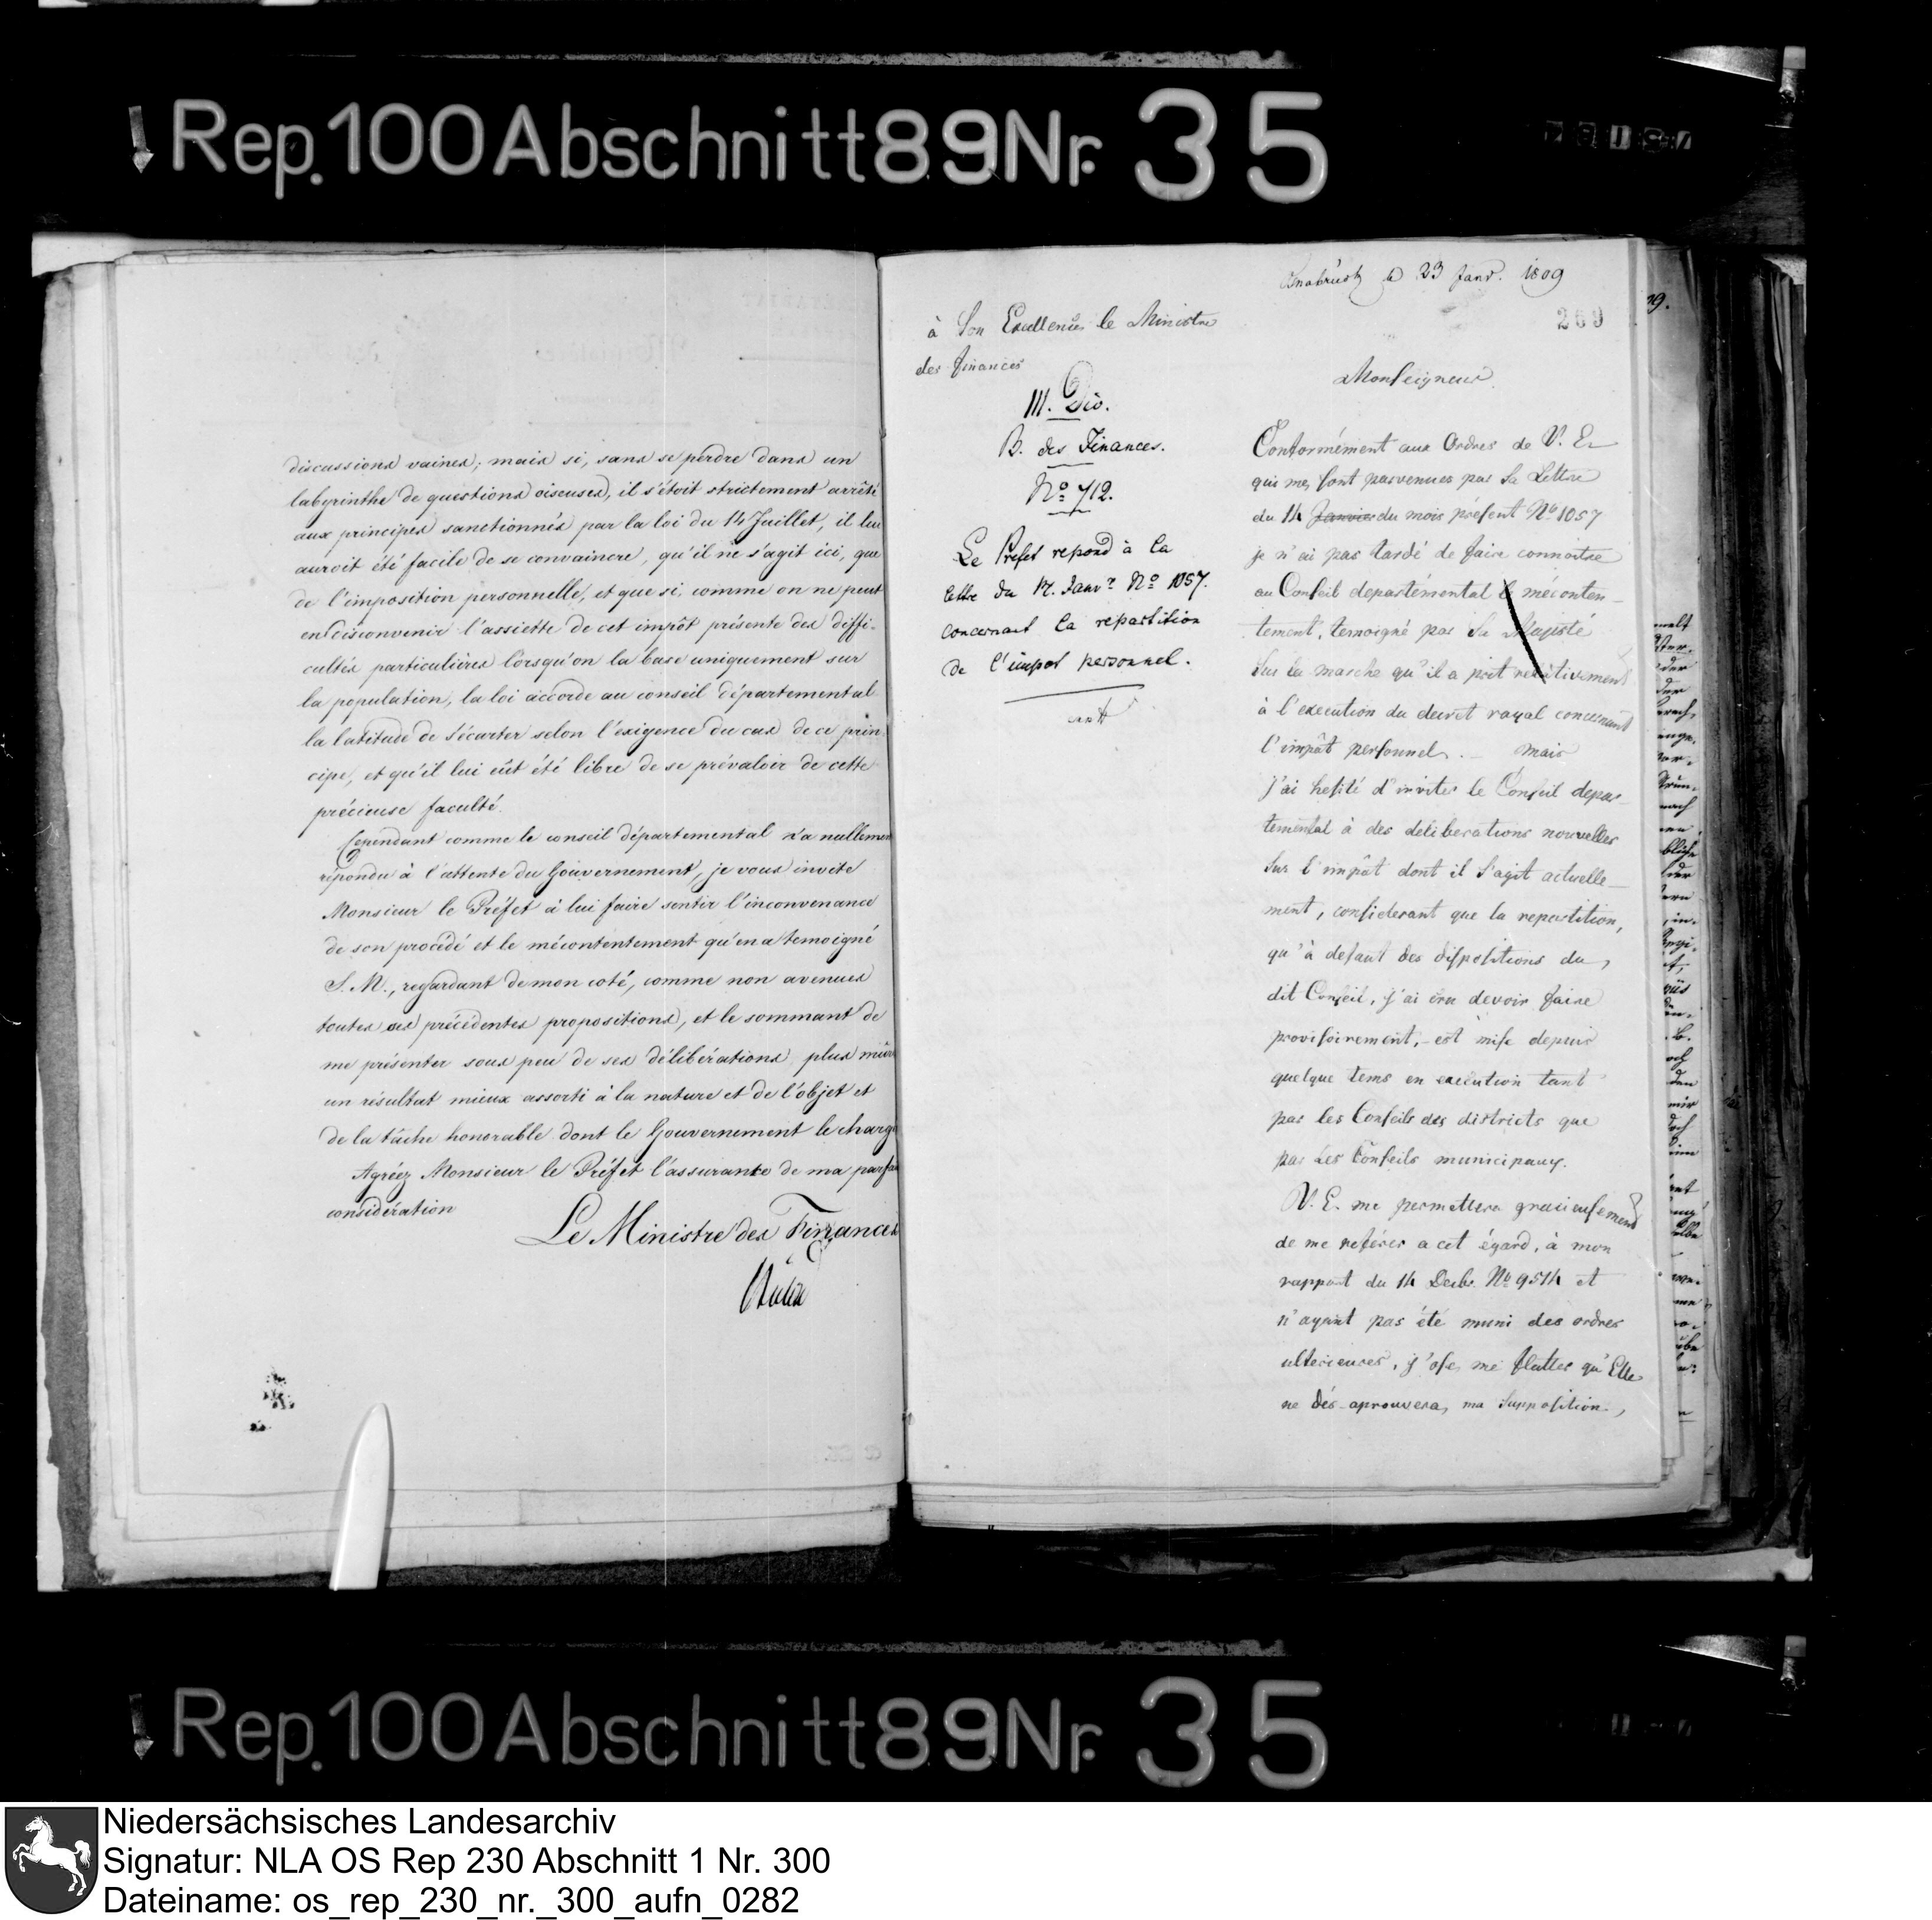 Rep. 100 Abschnitt 89 Nr. 35
discussions vaines; mais si, sans se perdre dans un
labyrinthe de questions oiseuses, il s'étoit strictement arrêté
aux principes sanctionnés par la loi du 14 Juillet, il lui
auroit été facile de se convaincre, qu'il ne s'agit ici, que
de l'imposition personnelle, et que si, comme on ne peut
en disconvenir l'assiette de cet impôt présente des diffi-
cultés particulières lorsqu'on la base uniquement sur
la population, la loi accorde au conseil départemental
la latitude de s'écarter selon l'exigence du cas de ce prin
cipe, et qu'il lui eût été libre de se prévaloir de cette
précieuse faculté.
Cependant comme le conseil départemental n'a nullemen
répondu à l'attente du Gouvernement, je vous invite
Monsieur le Préfet à lui faire sentir l'inconvenance
de son procédé et le mécontentement qu'en a temoigné
S. M., regardant de mon coté, comme non avenues
toutes ses précédentes propositions, et le sommant de
me présenter sous peu de ses délibérations plus mûre
un résultat mieux assorti à la nature et de l'objet et
de la tâche honorable dont le Gouvernement le charge
Agréez Monsieur le Préfet l'assurance de ma parfai
considération
Le Ministre des Finances
Osnabrück 23 Janv. 1809
269
à Son Excellence le Ministre
des finances
III. Div.
B. des Finances.
No 712.
Le Prefet repond à la
lettre du 14. Janvr No 1057.
concernant la repartition
de l'impot personnel.
Monseigneur
Conformément aux Ordres de V. E
qui me sont parvenues par Sa Lettre
du 14 Janvier du mois présent No 1057
je n'ai pas tardé de faire connoitre
au Conseil departémental le méconten-
tement, temoigné par Sa Majesté
sur la marche qu'il a prit relativement
à l'execution du decret royal concernant
l'impôt personnel. - mais
j'ai hesité d'inviter le Conseil depar-
temental à des deliberations nouvelles
sur l'impôt dont il s'agit actuelle-
ment, considerant que la repartition,
qu'à defaut des dispositions du
dit Conseil, j'ai cru devoir faire
provisoirement, - est mise depuis
quelque tems en execution tant
par les Conseils des districts que
par les Conseils municipaux.
V. E. me permettera gracieusement
de me referer a cet égard, à mon
rapport du 14 Decbr. No 9514 et
n'ayant pas été muni des ordres
ulterieures, j'ose me flatter qu'Elle
ne des-aprouvera, ma supposition,
Rep. 100 Abschnitt 89 Nr. 35
Niedersächsisches Landesarchiv
Signatur: NLA OS Rep 230 Abschnitt 1 Nr. 300
Dateiname: os_rep_230_nr._300_aufn_0282